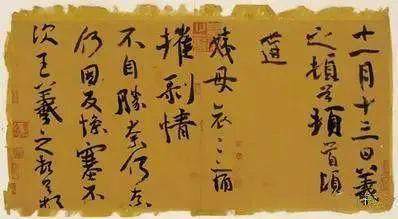 十一月十三日羲
之頓首頓首頃
遘
姨母哀哀痛
摧剝情
不自勝奈何奈
何因反慘塞不
次王羲之頓首頓首